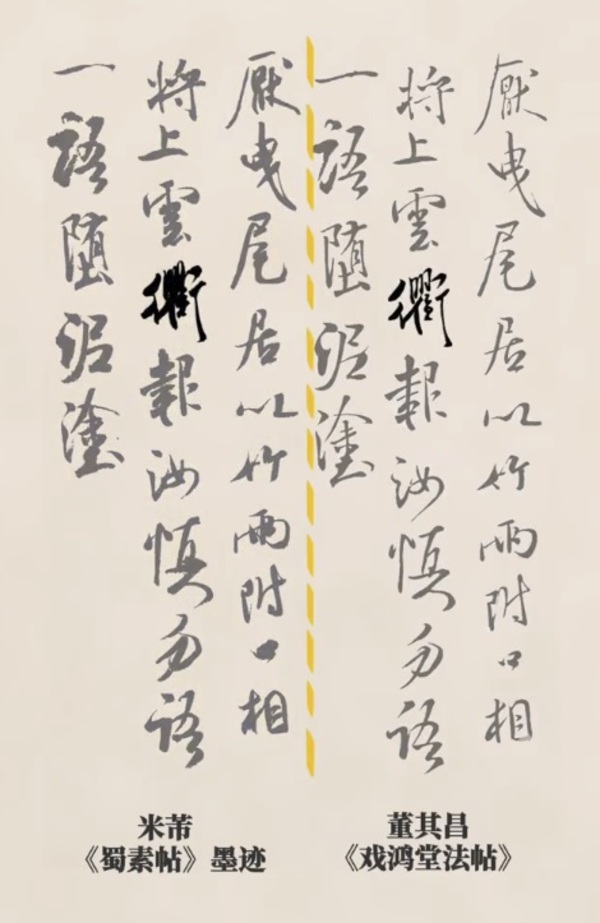 厭曳尾居以竹兩附口相
將上雲衢報汝慎勿語
一語墮泥塗
米芾
《蜀素帖》墨迹
厭曳尾居以竹兩附口相
將上雲衢報汝慎勿語
一語墮泥塗
董其昌
《戏鸿堂法帖》